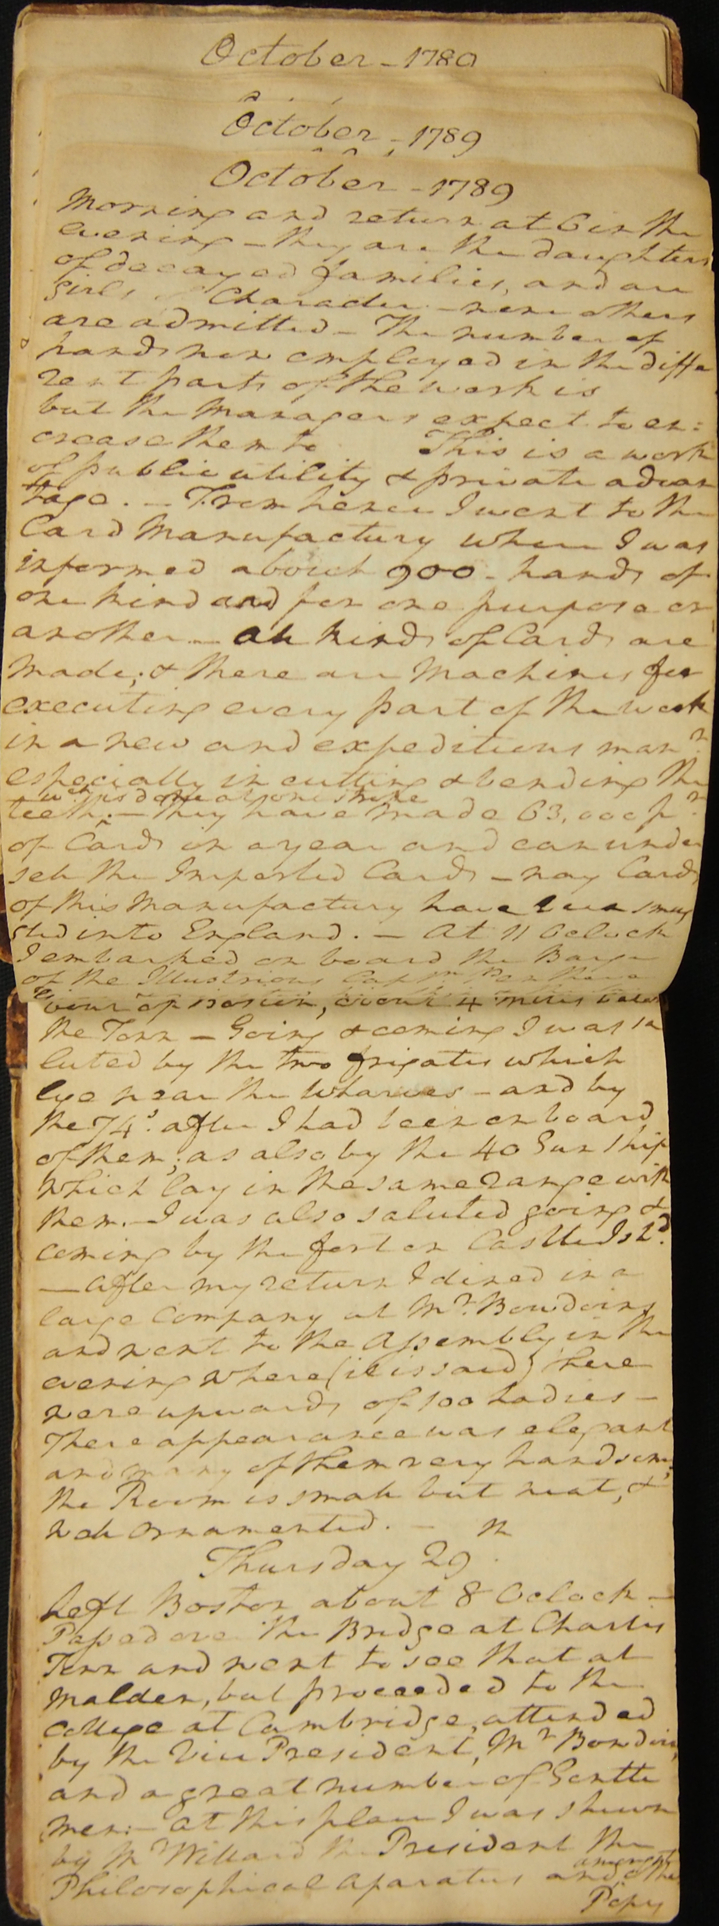 October - 1789
October - 1789
October - 1789
Morning and return at 6 in the
evening - they are the daughters
of decayed families, and are
girls of Character - none others
are admitted - The number of
hands now employed in the diffe
rent parts of the work is
but the Managers expect to en:
crease them to This is a work
of public utility & private advan
tage. - From hence I went to the
Card Manufactury where I was
informed about 900 - hands of
one kind and for one purpose or
another - All kinds of Cards are
made; & there are Machines for
executing every part of the work
in a new and expeditious man^r.
especially in cutting & bending the
wch. is done at one stroke
teeth. - They have made 63,000 p^r.
of Cards in a year and can under
sell the Imported Cards - nay Cards
of this Manufactury have been smug
gled into England. - At 11 Oclock
I embarked on board the Barge
of the Illustrious Captn.
bour of Boston, about 4 miles below
the Town - Going & coming I was sa
luted by the two frigates which
lye near the Wharves - and by
the 74s. after I had been on board
of them; as also by the 40 Gun ship
which lay in the same range with
them. - I was also saluted going &
coming by the fort on Castle Isld.
- After my return I dined in a
large Company at Mr. Bowdoins
and went to the Assembly in the
evening where (it is said) there
were upwards of 100 Ladies -
There appearance was elegant
and many of them very handsome;
the Room is small but neat, &
well ornamented. -
Thursday 29.
Left Boston about 8 Oclock -
Passed over the Bridge at Charles
Town and went to see that at
Malden, but proceeded to the
college at Cambridge, attended
by the Vice President, Mr. Bowdoin,
and a great number of Gentle
men: - at this place I was shewn
by Mr Willard the President the
amongst
Philosophical Aparatus and others
Popes